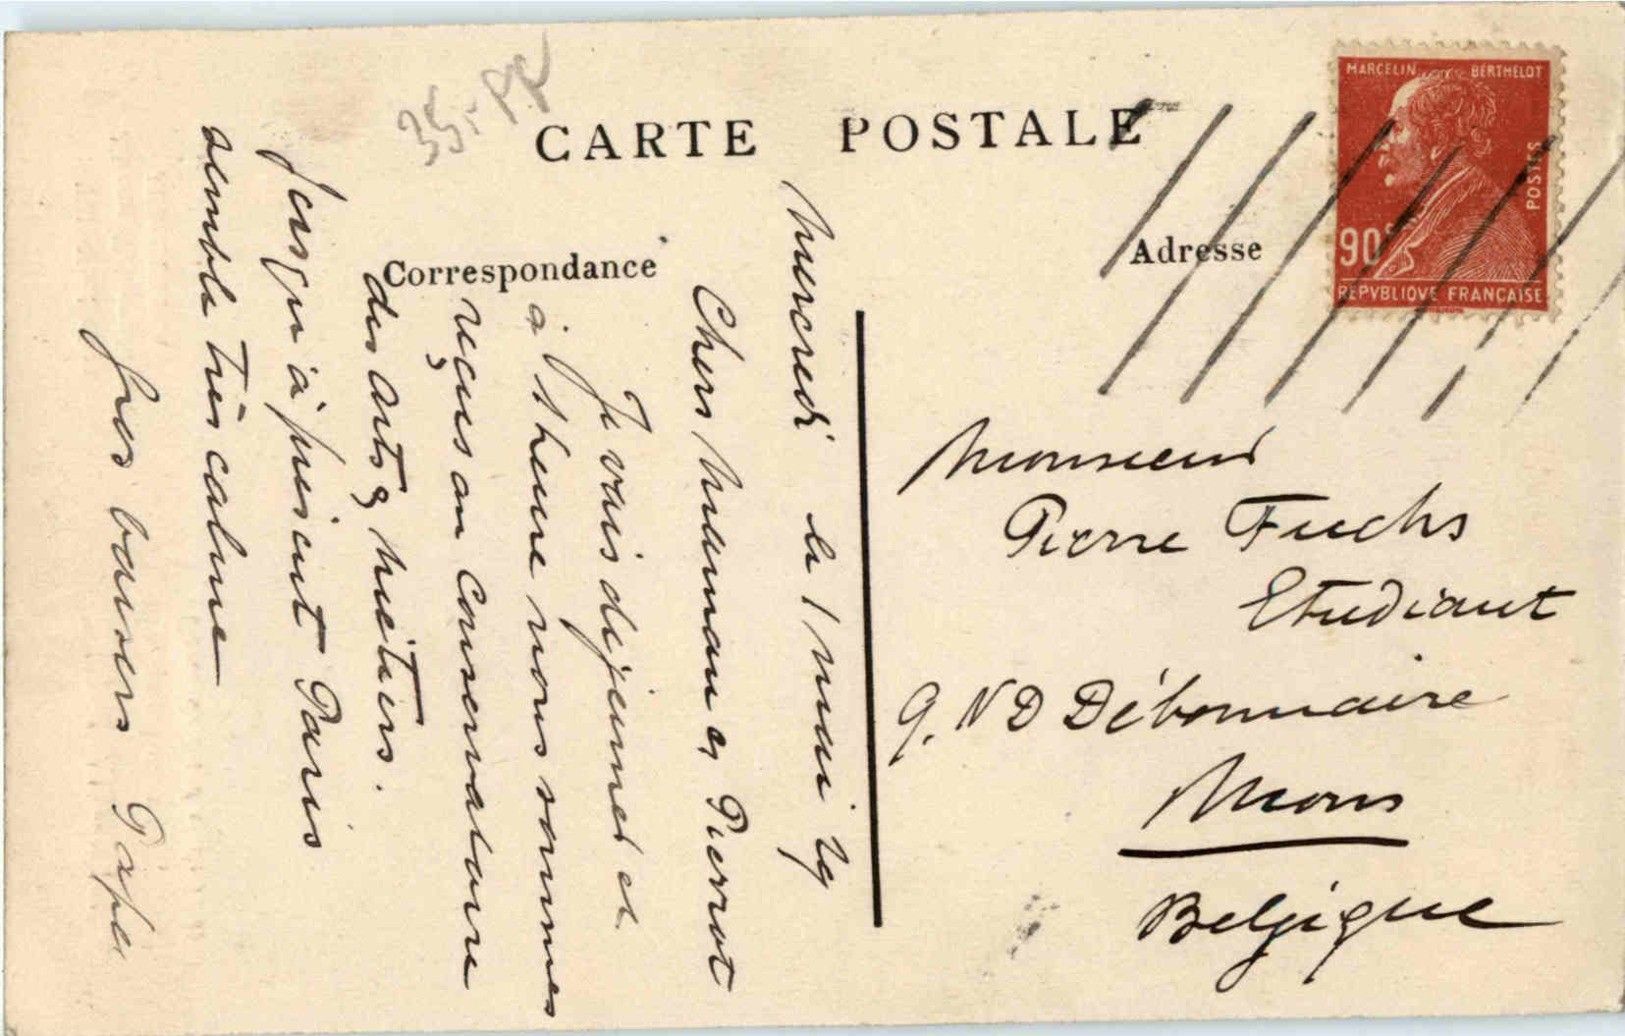 35.- PP
CARTE POSTALE
MARCELIN BERTHELOT
POSTES
90c
REPVBLIQVE FRANÇAISE
Correspondance
Adresse
Mercredi le 1 mai 29
Chers Maman et Pierrot
Je vais déjeuner et
à 1 heure nous sommes
reçus au Conservatoire
des arts et métiers.
Jusqu'à présent Paris
semble très calme
Gros baisers Papa
Monsieur
Pierre Fuchs
Etudiant
9. ND Débonnaire
Mons
Belgique